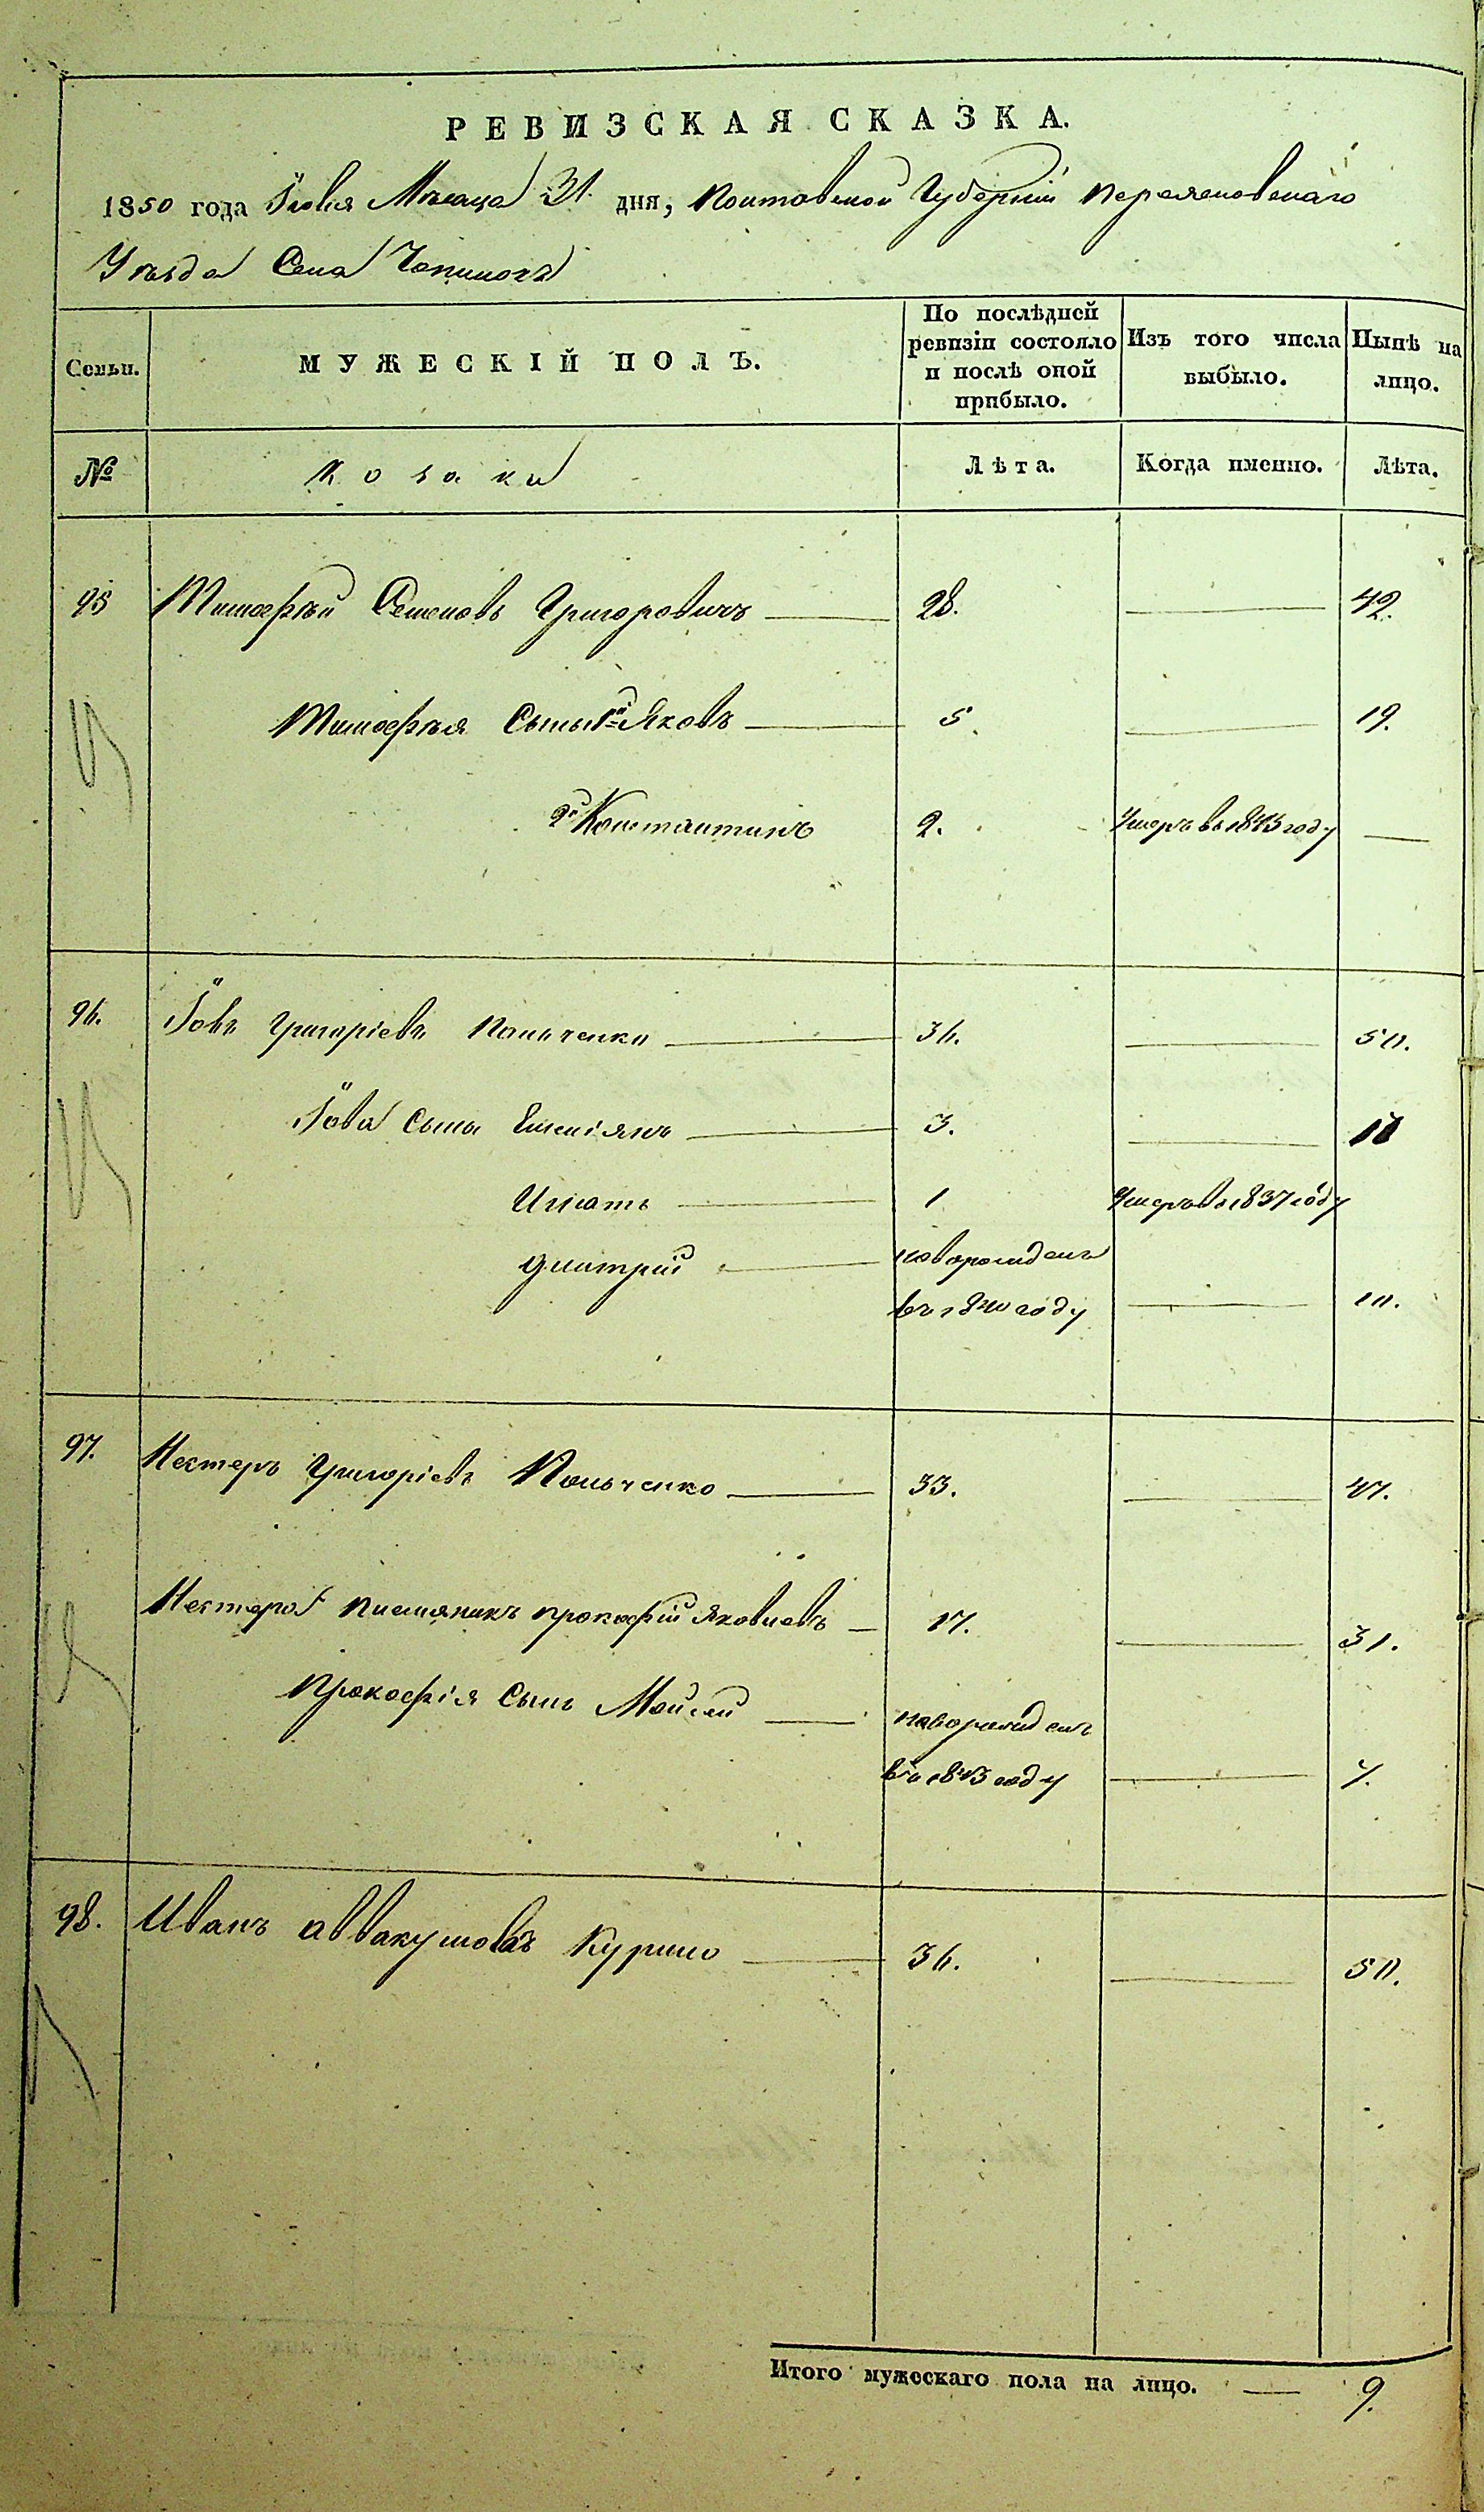 РЕВИЗСКАЯ СКАЗКА.
1850 года Іюля Мѣсяца 31 дня, Полтавской Губерніи Переясловскаго
Уѣзда Села Чопилокъ
Семьи.
МУЖЕСКІЙ ПОЛЪ.
По послѣдней ревизіи состояло и послѣ оной прибыло.
Изъ того числа выбыло.
Нынѣ на лицо.
№
Козаки
Лѣта.
Когда именно.
Лѣта.
95 Тимофѣй Семеновъ Григоровичъ 28. 42.
Тимофѣя Сыны 1й Яковъ 5. 19.
2й Константинъ 2. Умеръ въ 1843 году
96. Іовъ Григоріевъ Польченко 36. 50.
Іова Сыны Емеліянъ 3. 17
Игнатъ 1 Умеръ въ 1837 году
Дмитрій новорожденъ
въ 1840 году 10.
97. Нестеръ Григоріевъ Польченко 33. 47.
Нестера племяникъ Прокофій Яковлевъ 17. 31.
Прокофія Сынъ Мойсей новорожденъ
въ 1843 году 7.
98. Иванъ Аввакумовъ Курило 36. 50.
Итого мужескаго пола на лицо. 9.